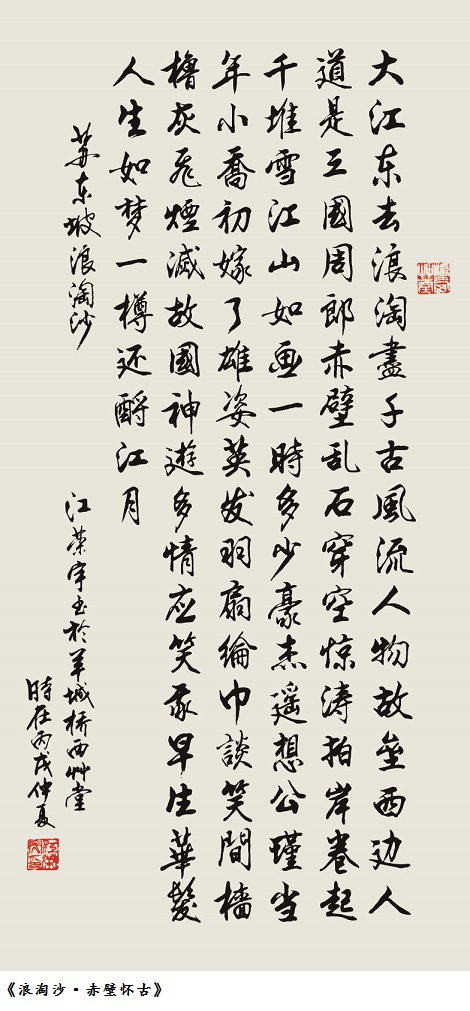 大江东去浪淘盡千古風流人物故垒西边人
道是三國周郎赤壁乱石穿空惊涛拍岸卷起
千堆雪江山如画一時多少豪杰遥想公瑾当
年小喬初嫁了雄姿英发羽扇綸巾談笑間檣
櫓灰飛煙滅故國神遊多情应笑我早生華髮
人生如梦一樽还酹江月
苏东坡浪淘沙
江荣宇书於羊城桥西艸堂
時在丙戌仲夏
《浪淘沙·赤壁怀古》